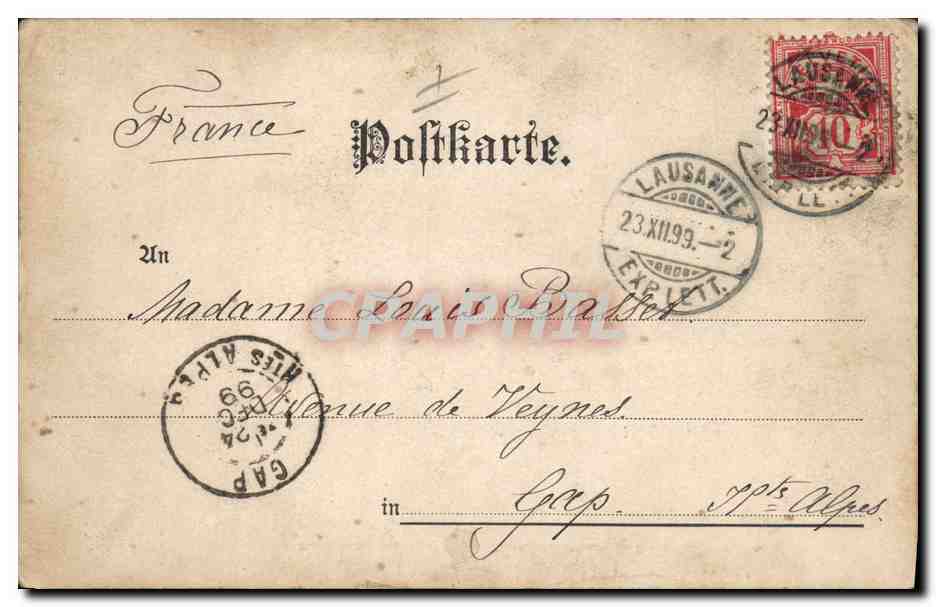 France
Postkarte.
LAUSANNE
23.XII.99.–2
EXP. LETT.
10
LAUSANNE
23.XII.99.–2
An
Madame Louis Basset.
CPAPHIL
Avenue de Veynes.
GAP
24
DEC
99
HTES ALPES
in Gap. Htes Alpes.